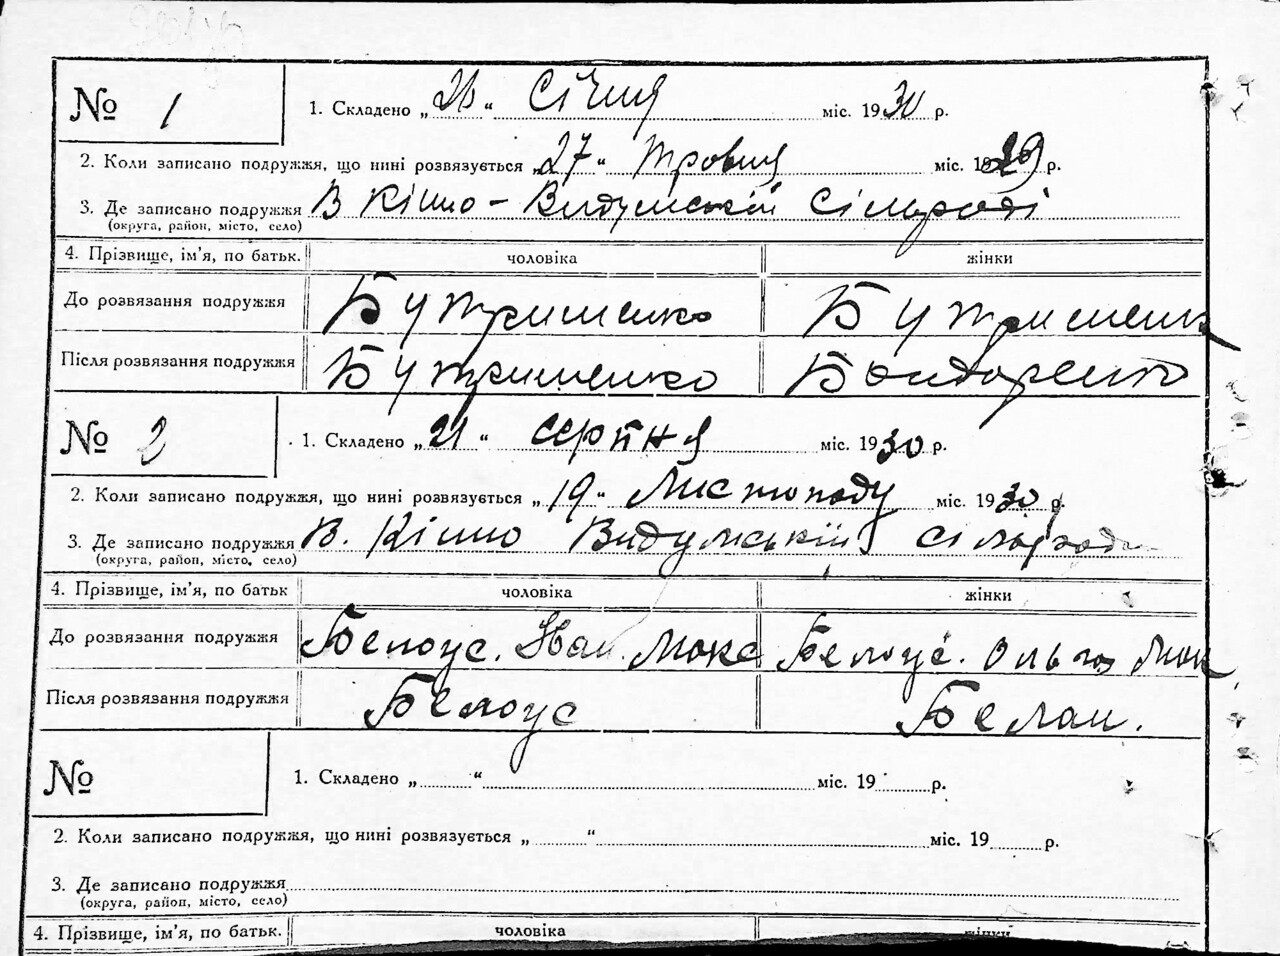 № 1
1. Складено „ 26 “ Січня міс. 1930 р.
2. Коли записано подружжя, що нині розвязується „ 27 “ травня міс. 1929 р.
3. Де записано подружжя В Кішно-Видумській сільраді
(округа, район, місто, село)
4. Прізвище, ім'я, по батьк. чоловіка жінки
До розвязання подружжя Бутришенко Бутришенк
Після розвязання подружжя Бутришенко Бондаренко
№ 2
1. Складено „ 21 “ серпня міс. 1930 р.
2. Коли записано подружжя, що нині розвязується „ 19 “ Листопаду міс. 1930 р.
3. Де записано подружжя В. Кішно Видумській сільраді
(округа, район, місто, село)
4. Прізвище, ім'я, по батьк чоловіка жінки
До розвязання подружжя Белоус. Іван. Макс Белоус. Ольга Мак
Після розвязання подружжя Белоус Белан.
№
1. Складено „ “ міс. 19 р.
2. Коли записано подружжя, що нині розвязується „ “ міс. 19 р.
3. Де записано подружжя
(округа, район, місто, село)
4. Прізвище, ім'я, по батьк. чоловіка жінки